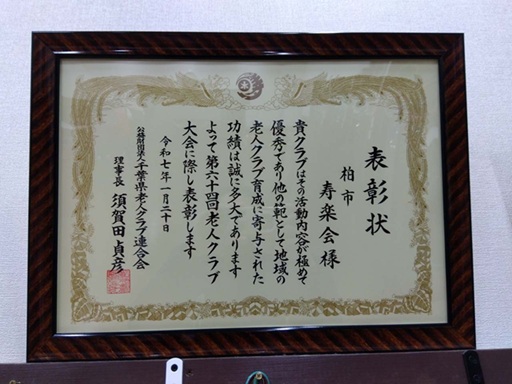 表彰状
柏市
寿楽会様
貴クラブはその活動内容が極めて
優秀であり他の範として地域の
老人クラブ育成に寄与された
功績は誠に多大であります
よって第六十四回老人クラブ
大会に際し表彰します
令和七年一月二十日
公益財団法人千葉県老人クラブ連合会
理事長 須賀田貞彦